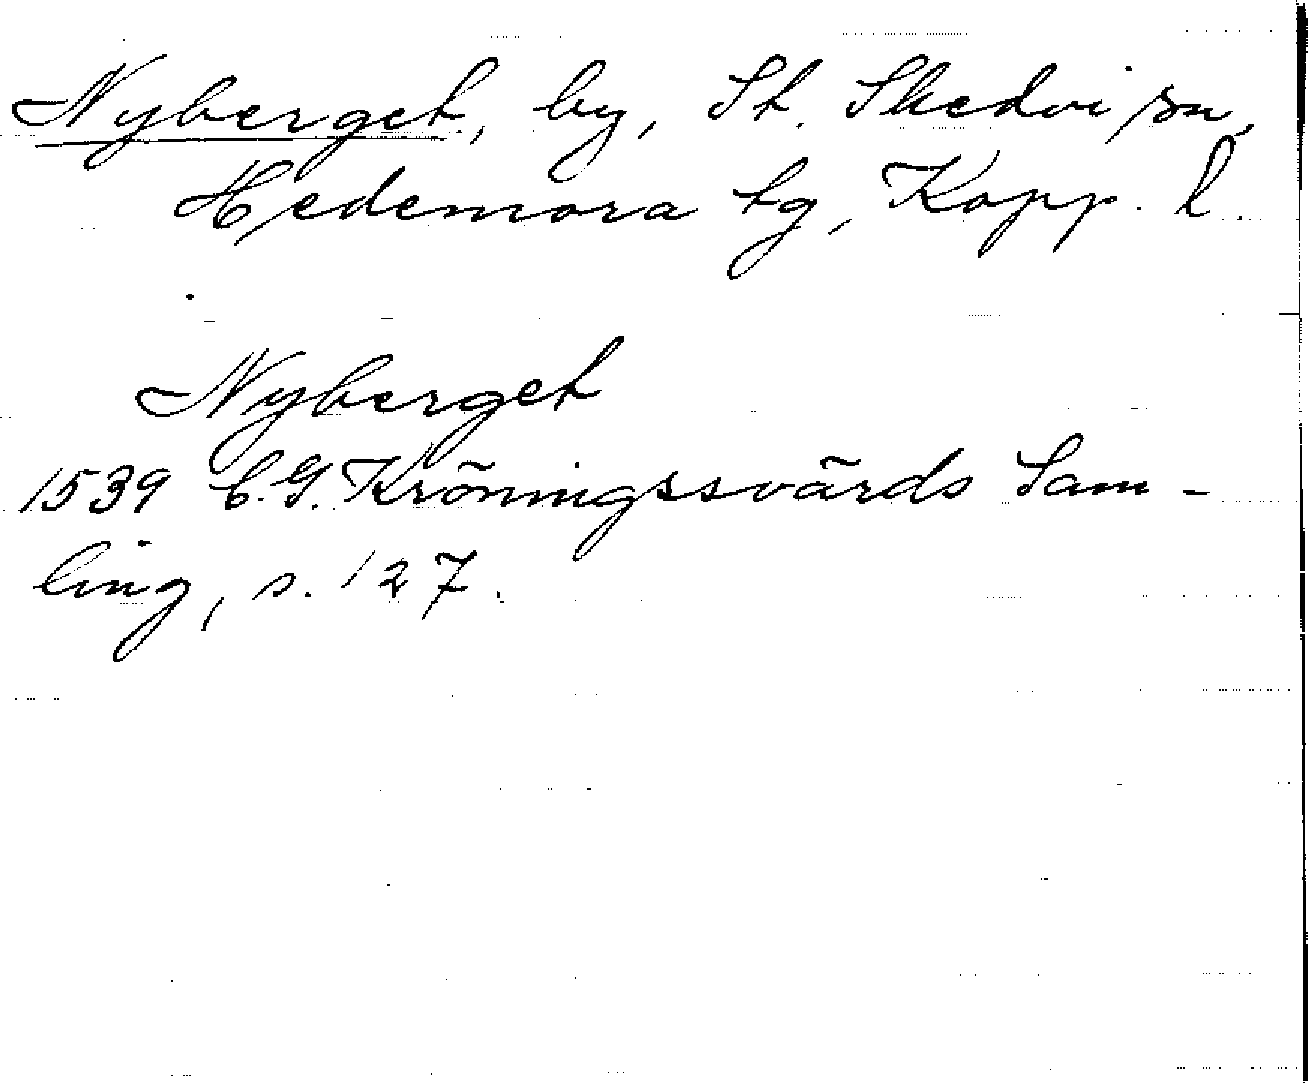 Nyberget, by, St. Skedvi sn,
Hedemora tg, Kopp. l.
Nyberget
1539 C.G. Kröningssvärds Sam-
ling, s. 127.